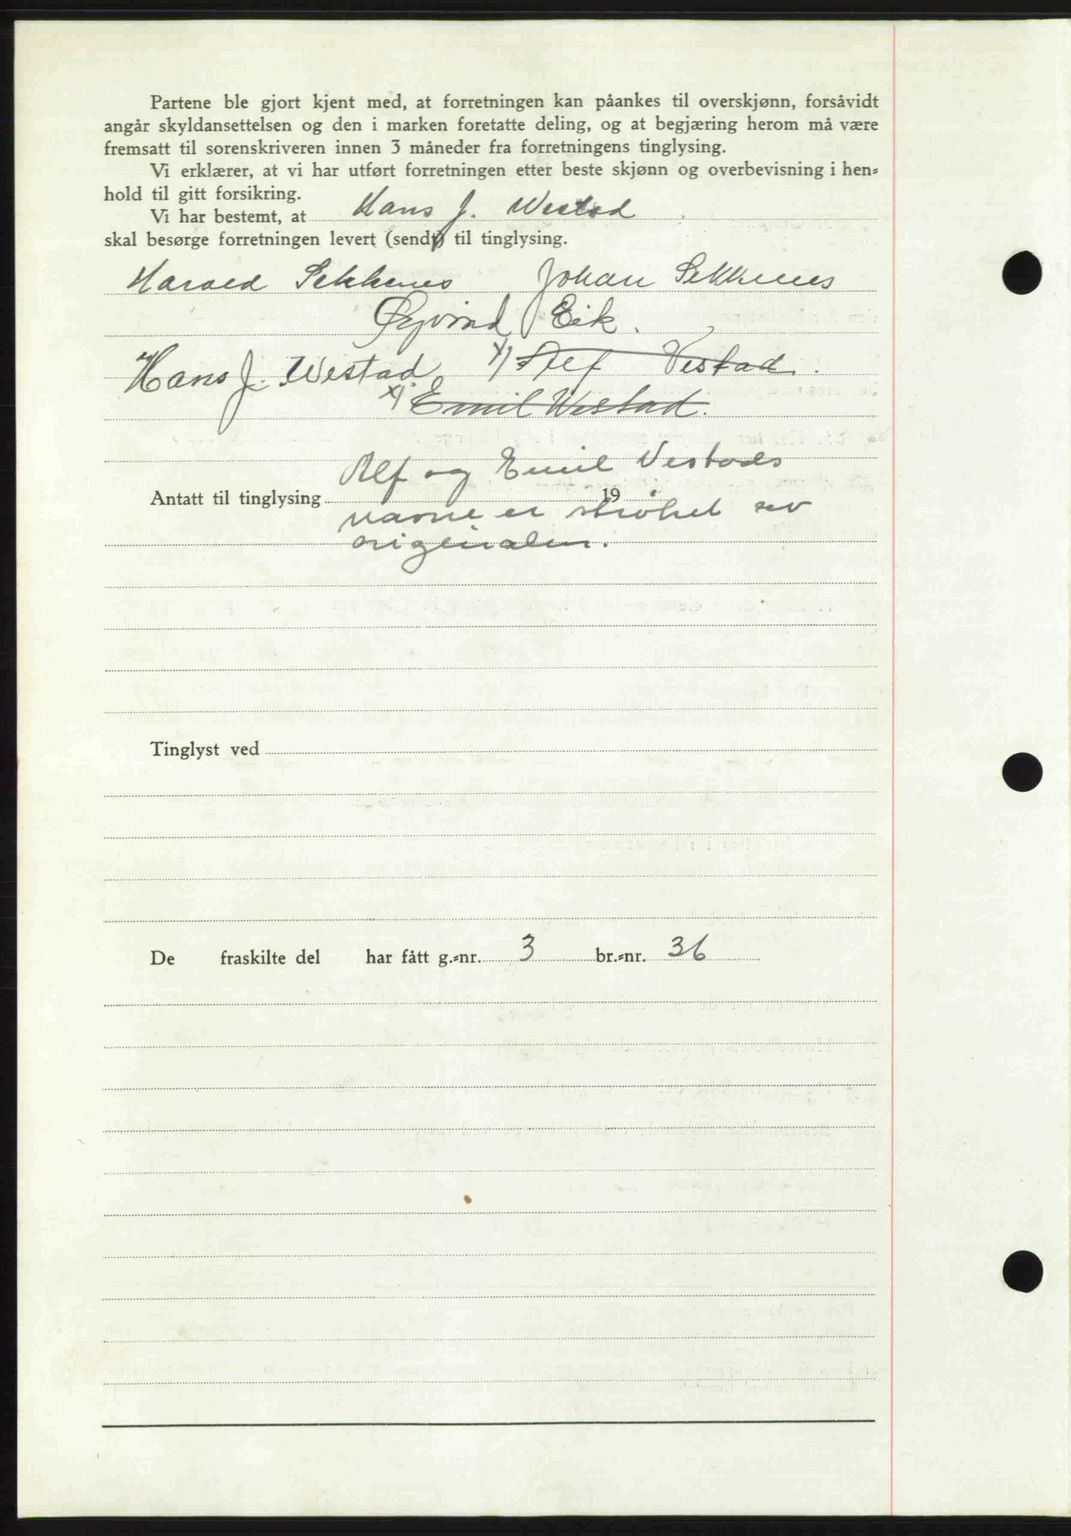 Partene ble gjort kjent med, at forretningen kan påankes til overskjønn, forsåvidt
angår skyldansettelsen og den i marken foretatte deling, og at begjæring herom må være
fremsatt til sorenskriveren innen 3 måneder fra forretningens tinglysing.
Vi erklærer, at vi har utført forretningen etter beste skjønn og overbevisning i hen-
hold til gitt forsikring.
Vi har bestemt, at Hans J. Westad
skal besørge forretningen levert (sendt) til tinglysing.
Harald Sekkenes Johan Sekkenes
Øyvind Eik.
Hans J. Westad x) Alf Vestad.
x) Emil Westad.
Alf og Emil Vestads
Antatt til tinglysing 19
navne er strøket av
originalen.
Tinglyst ved
De fraskilte del har fått g.-nr. 3 br.-nr. 36